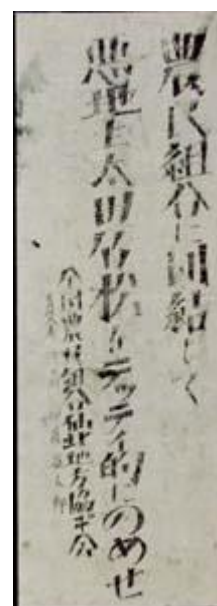 農民組合に団結して
悪地主太田名松をテッテイ的にのめせ
全国農民組合仙北地方協ギ会